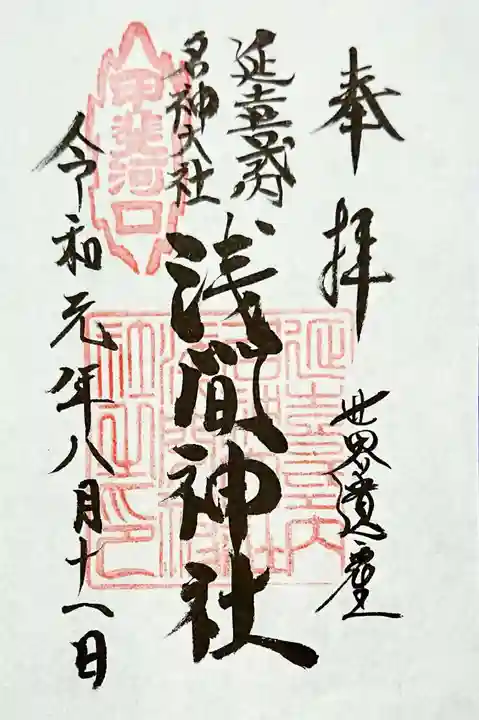 奉拝
世界遺産
延喜式内
名神大社
浅間神社
令和元年八月十八日
甲斐河口